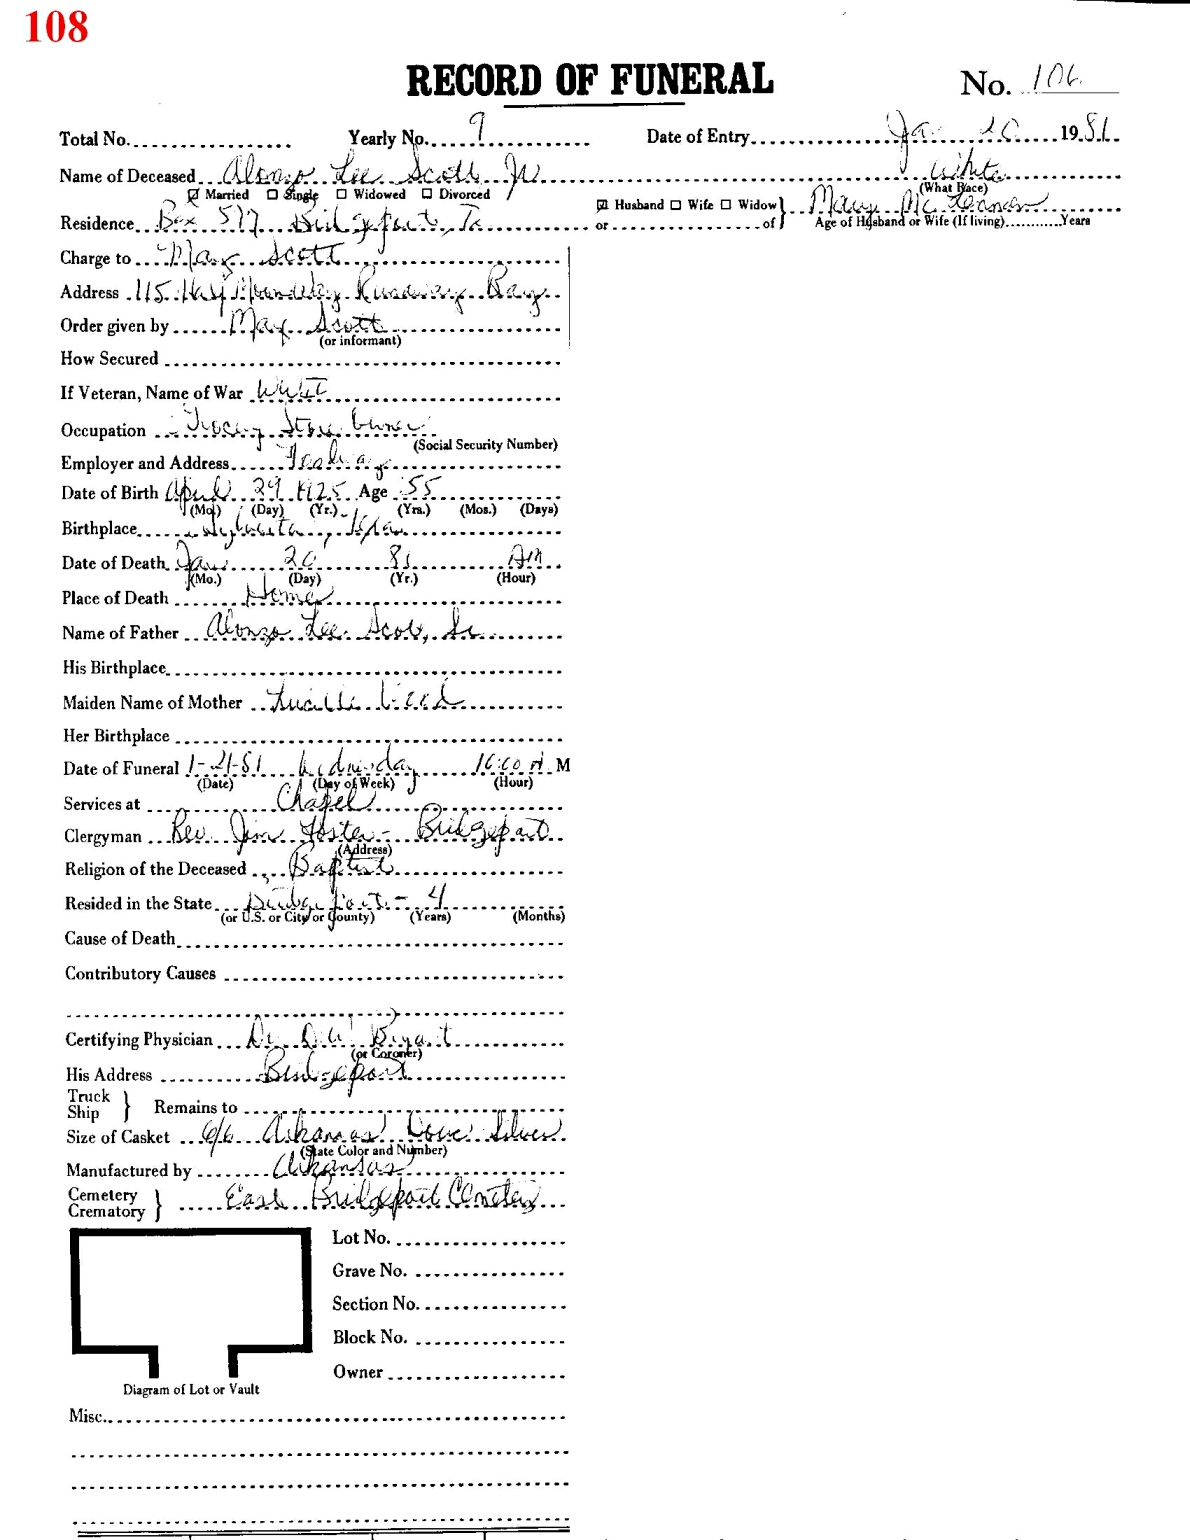 108
RECORD OF FUNERAL No. 106
Total No. Yearly No. 9 Date of Entry Jan 20 1981
Name of Deceased Alonzo Lee Scott Jr White
(What Race)
☑ Married ☐ Single ☐ Widowed ☐ Divorced
☑ Husband ☐ Wife ☐ Widow } Mary Mc
Residence Box 517 Bridgeport, Tx or of } Age of Husband or Wife (If living) Years
Charge to Mary Scott
Address 115 Half Moon Way Runaway Bay
Order given by Mary Scott
(or informant)
How Secured
If Veteran, Name of War WWII
Occupation Grocery Store Owner
(Social Security Number)
Employer and Address
Date of Birth April 29 1925 Age 55
(Mo.) (Day) (Yr.) (Yrs.) (Mos.) (Days)
Birthplace
Date of Death Jan 20 81 AM
(Mo.) (Day) (Yr.) (Hour)
Place of Death Home
Name of Father Alonzo Lee Scott, Sr
His Birthplace
Maiden Name of Mother Lucille
Her Birthplace
Date of Funeral 1-21-81 Wednesday 10:00 A M
(Date) (Day of Week) (Hour)
Services at Chapel
Clergyman Rev. Jim Foster - Bridgeport
(Address)
Religion of the Deceased Baptist
Resided in the State Bridgeport - 4
(or U.S. or City or County) (Years) (Months)
Cause of Death
Contributory Causes
Certifying Physician Dr. Bryant
(or Coroner)
His Address Bridgeport
Truck
Ship } Remains to
Size of Casket 6/6 Arkansas Dove Silver
(State Color and Number)
Manufactured by Arkansas
Cemetery
Crematory } East Bridgeport Cemetery
Lot No.
Grave No.
Section No.
Block No.
Owner
Diagram of Lot or Vault
Misc.